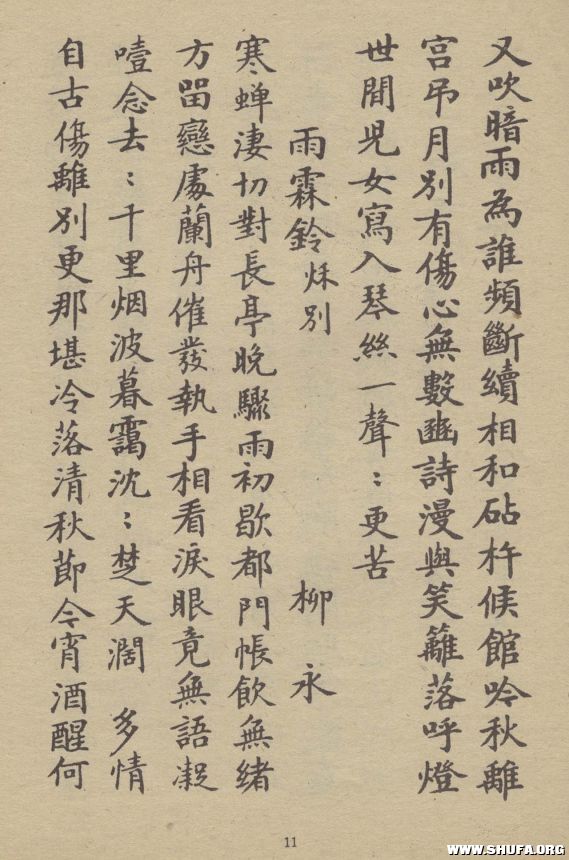 又吹暗雨為誰頻斷續相和砧杵候館吟秋離
宮吊月別有傷心無數豳詩漫與笑籬落呼燈
世間兒女寫入琴絲一聲：更苦
雨霖鈴 秌別 柳永
寒蝉淒切對長亭晚驟雨初歇都門帳飲無緒
方留戀處蘭舟催發執手相看淚眼竟無語凝
噎念去：千里烟波暮靄沈：楚天濶 多情
自古傷離別更那堪冷落清秋節今宵酒醒何
11
WWW.SHUFA.ORG